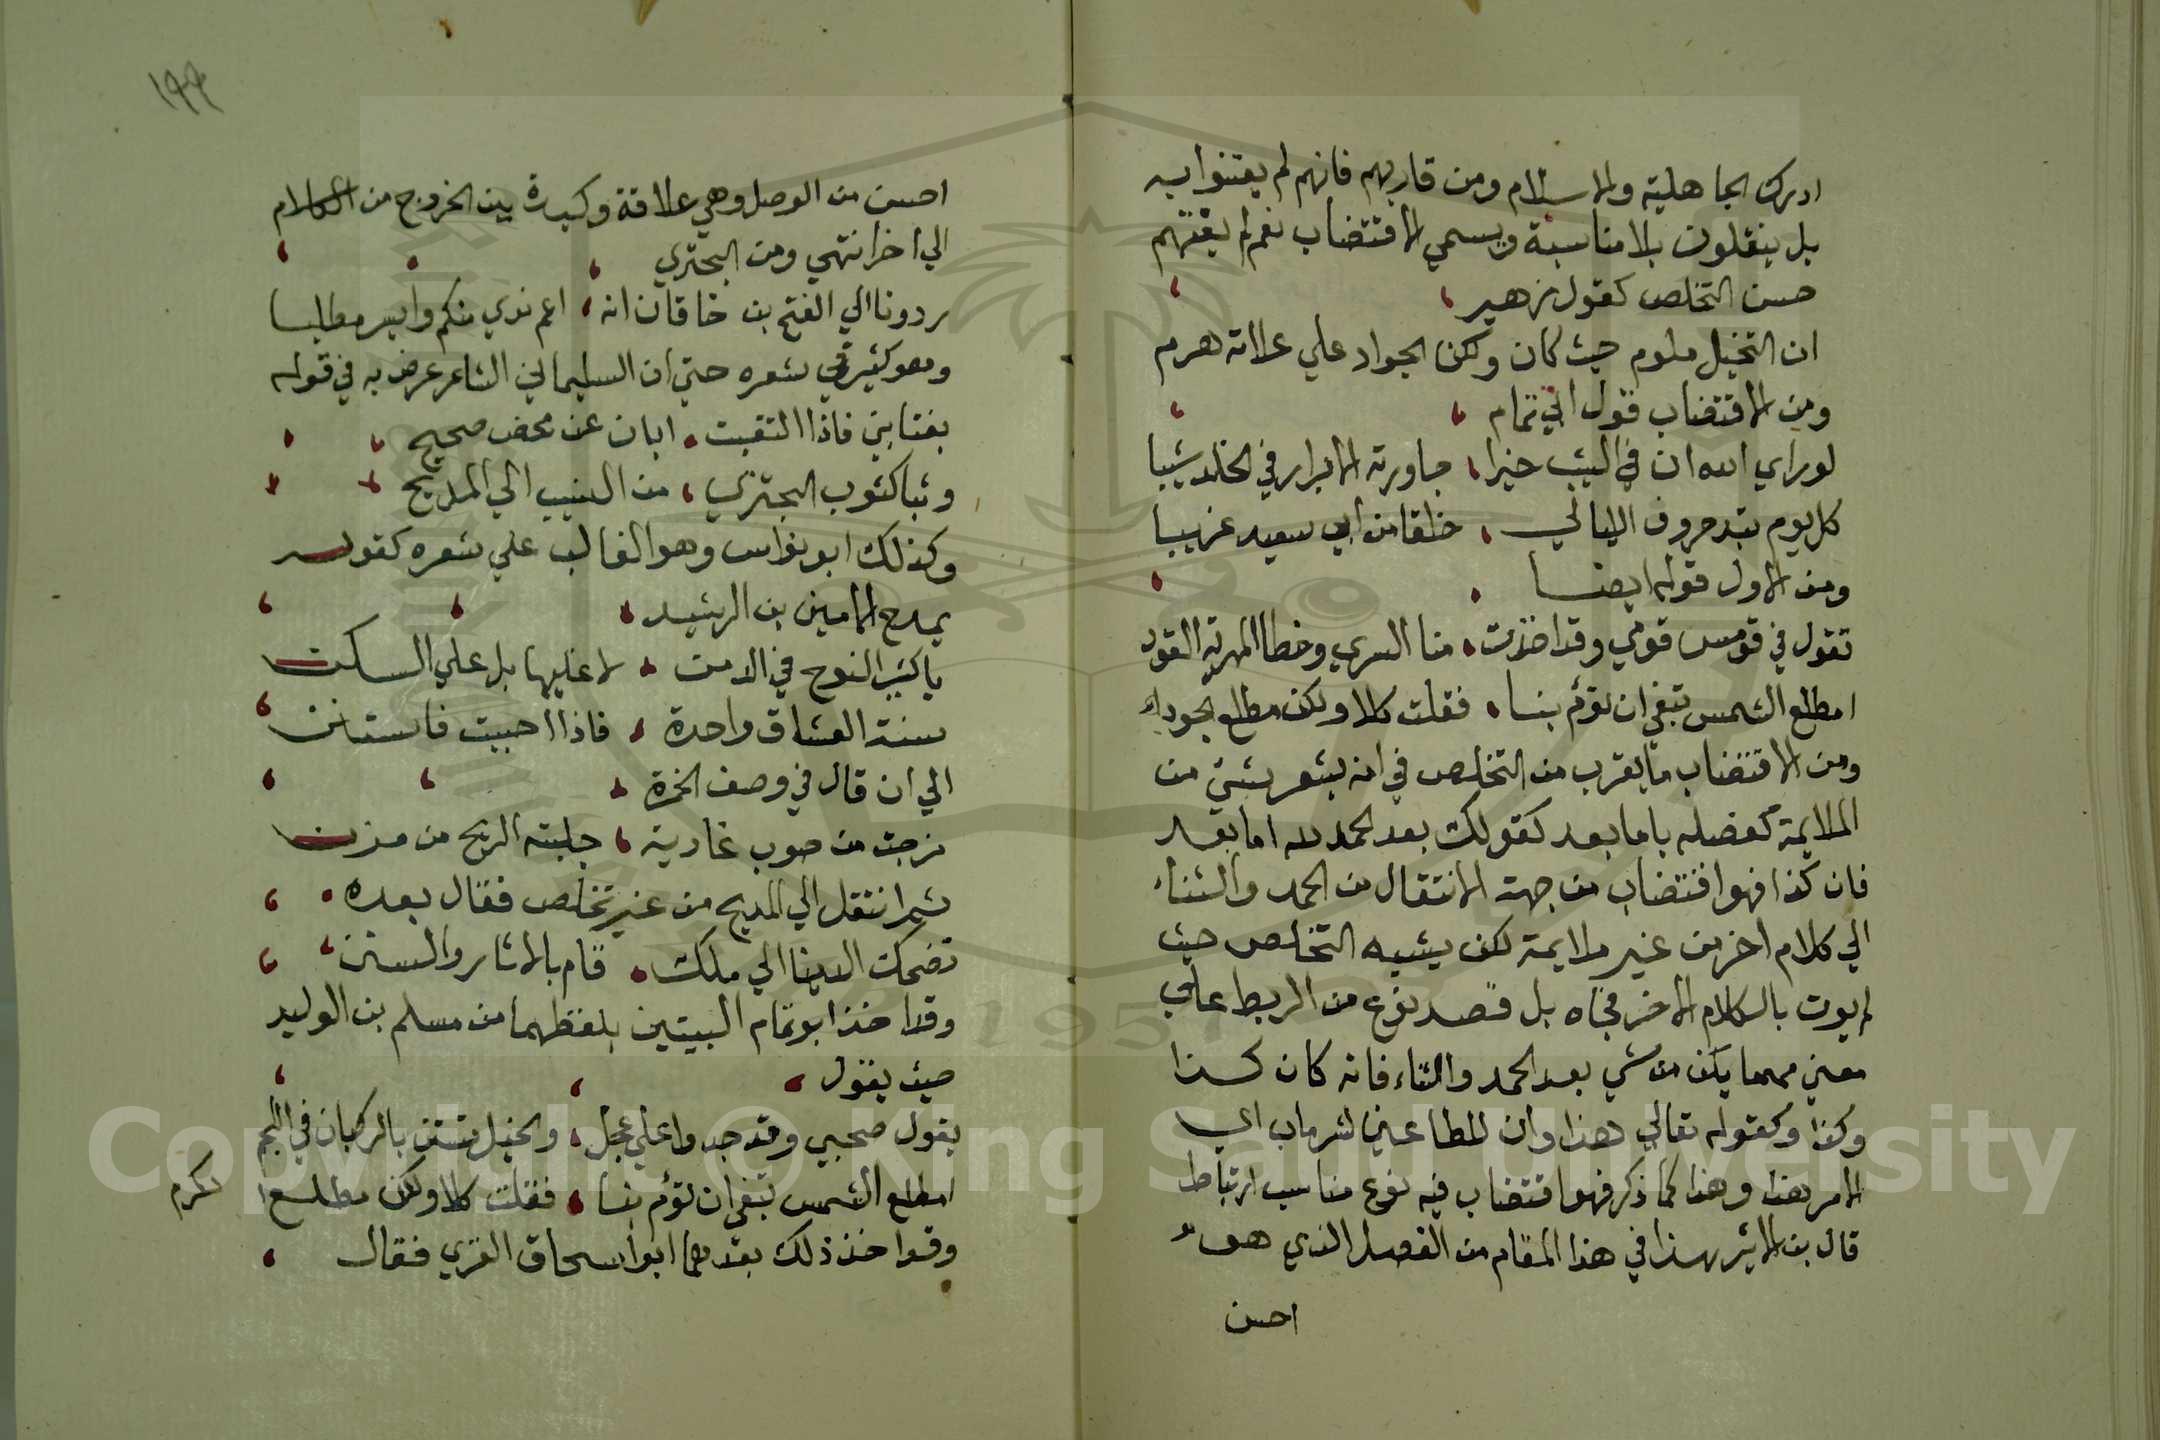 ادرك الجاهلية والاسلام ومن قاربهم فانهم لم يعتنوا به
بل ينقلون بلا مناسبة ويسمي الاقتضاب نعم لم يفتهم
حسن التخلص كقول زهير
ان البخيل ملوم حيث كان ولكن الجواد علي علاته هرم
ومن الاقتضاب قول ابي تمام
لو راي الله ان في الشيب خيرا، جاورته الابرار في الخلد شيبا
كل يوم تبد صروف الليالي، خلقا من ابي سعيد غريبا
ومن الاول قوله ايضا
تقول في قومس قومي وقد اخذت، منا السري وخطا المهرية القود
امطلع الشمس تبغي ان تؤم بنا، فقلت كلا ولكن مطلع الجود
ومن الاقتضاب ما يقرب من التخلص في انه يشعر بشئ من
الملايمة كفصله باما بعد كقولك بعد الحمد لله اما بعد
فان كذا فهو اقتضاب من جهة الانتقال من الحمد والثناء
الي كلام اخر من غير ملايمة لكن يشبه التخلص حيث
لم يوت بالكلام الاخر فجاه بل قصد نوع من الربط علي
معني مهما يكن من شي بعد الحمد والثناء فانه كان كذا
وكذا وكقوله تعالي هذا وان للطاغين لشر ماب اي
الامر هذا وهذا كما ذكر فهو اقتضاب فيه نوع مناسب ارتباط
قال بن الاثير هذا في هذا المقام من الفصل الذي هو
احسن
١٩٩
احسن من الوصل وهي علاقة وكيدة بين الخروج من الكلام
الي اخر انتهي ومن البحتري
رددنا الي الفتح بن خاقان انه، اعم ندي منكم وايسر مطلبا
وهو كثير في شعره حتي ان السليماني الشاعر عرض به في قوله
يغتابني فاذا التقيت، ابان عن محض صحيح
وثبا كثوب البحتري، من النسيب الي المديح
وكذلك ابو نواس وهو الغالب علي شعره كقوله
يمدح الامين بن الرشيد
يا كثير النوح في الدمن، لا عليها بل علي السكن
سنة العشاق واحدة، فاذا احببت فاستنن
الي ان قال في وصف الخمرة
مزجت من صوب غادية، جلبته الريح من مزن
ثم انتقل الي المديح من غير تخلص فقال بعده
تضحك الدينا الي ملك، قام بالاثار والسنن
وقد اخذ ابو تمام البيتين بلفظهما من مسلم بن الوليد
حيث يقول
يقول صحبي وقد جدوا علي عجل، والخيل تستن بالركبان في اللجم
امطلع الشمس تبغي ان تؤم بنا، فقلت كلا ولكن مطلع الكرم
وقد اخذ ذلك بعدهما ابو اسحاق الغزي فقال